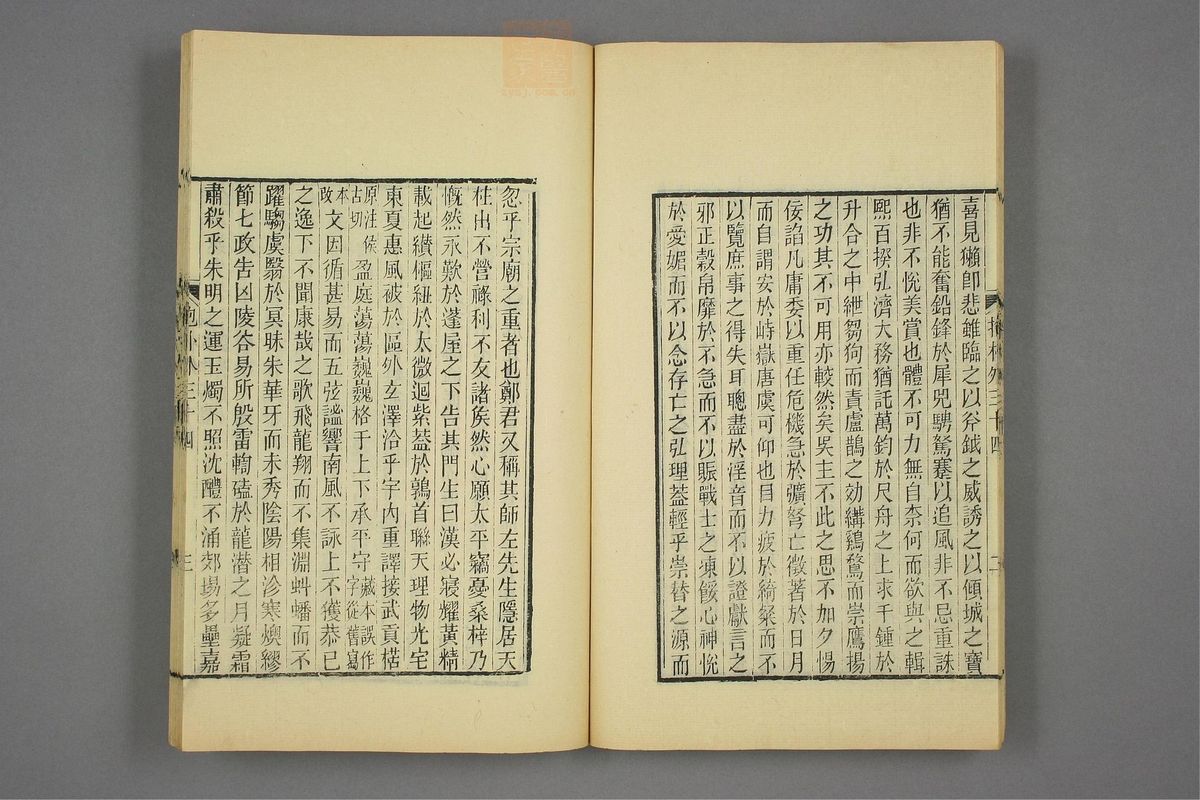 喜見獺卽悲雖臨之以斧鉞之威誘之以傾城之寶
猶不能奮鉛鋒於犀兕騁駑蹇以追風非不忌重誅
也非不恱美賞也體不可力無自柰何而欲與之輯
熙百揆弘濟大務猶託萬鈞於尺舟之上求千鍾於
升合之中紲芻狗而責盧鵲之効縛鷄鶩而崇鷹揚
之功其不可用亦較然矣吳主不此之思不加夕惕
佞諂凡庸委以重任危機急於彍弩亡徵著於日月
而自謂安於峙嶽唐虞可仰也目力疲於綺粲而不
以覽庶事之得失耳聰盡於淫音而不以證獻言之
邪正穀帛靡於不急而不以賑戰士之凍餒心神恱
於愛媚而不以念存亡之弘理葢輕乎崇替之源而
忽乎宗廟之重者也鄭君又稱其師左先生隱居天
柱出不營祿利不友諸矦然心願太平竊憂桑梓乃
慨然永歎於蓬屋之下告其門生曰漢必寢耀黃精
載起纘樞紐於太微迴紫葢於鶉首聯天理物光宅
東夏惠風被於區外玄澤洽乎宇內重譯接武貢楛
原注侯古切盈庭蕩蕩巍巍格于上下承平守藏本誤作字從舊寫
本改文因循甚易而五弦謐響南風不詠上不獲恭已
之逸下不聞康哉之歌飛龍翔而不集淵虯蟠而不
躍騶虞翳於冥昧朱華牙而未秀陰陽相沴寒燠繆
節七政告凶陵谷易所殷雷輷磕於龍潜之月凝霜
肅殺乎朱明之運玉燭不照沈醴不涌郊場多壘嘉
外三十四
二
抱朴外三十四
三